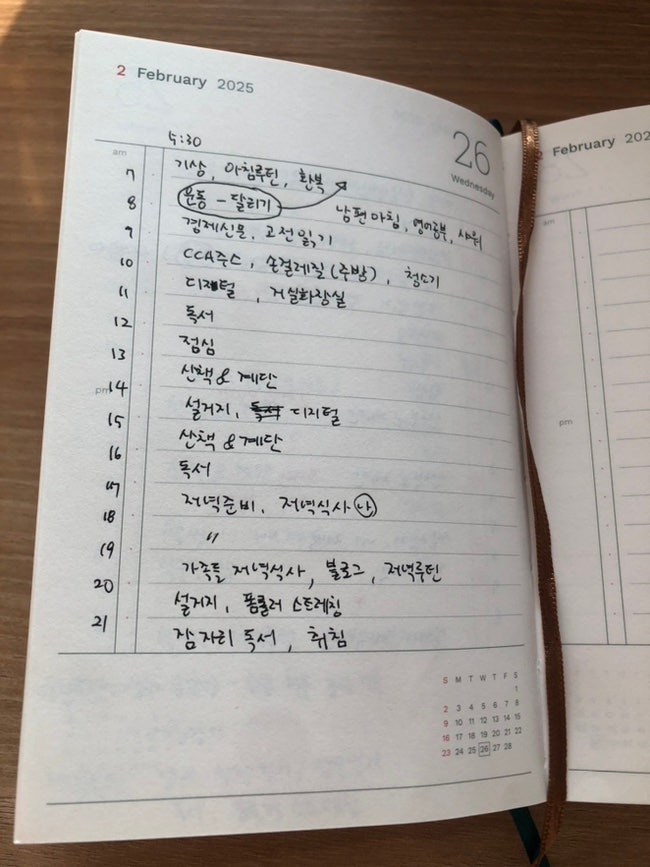 2 February 2025
26
Wednesday
5:30
am
7 기상, 아침루틴, 환복
8 운동 - 달리기
남편아침, 영어공부, 샤워
9 경제신문, 고전읽기
10 CCA주스, 손걸레질(주방), 청소기
11 디지털, 거실화장실
12 독서
13 점심
pm 14 산책 & 계단
15 설거지, 독서 디지털
16 산책 & 계단
17 독서
18 저녁준비, 저녁식사 나
19 "
20 가족들 저녁식사, 블로그, 저녁루틴
21 설거지, 폼롤러 스트레칭
잠자리 독서, 취침
S M T W T F S
1
2 3 4 5 6 7 8
9 10 11 12 13 14 15
16 17 18 19 20 21 22
23 24 25 26 27 28
2 February 202
am
pm